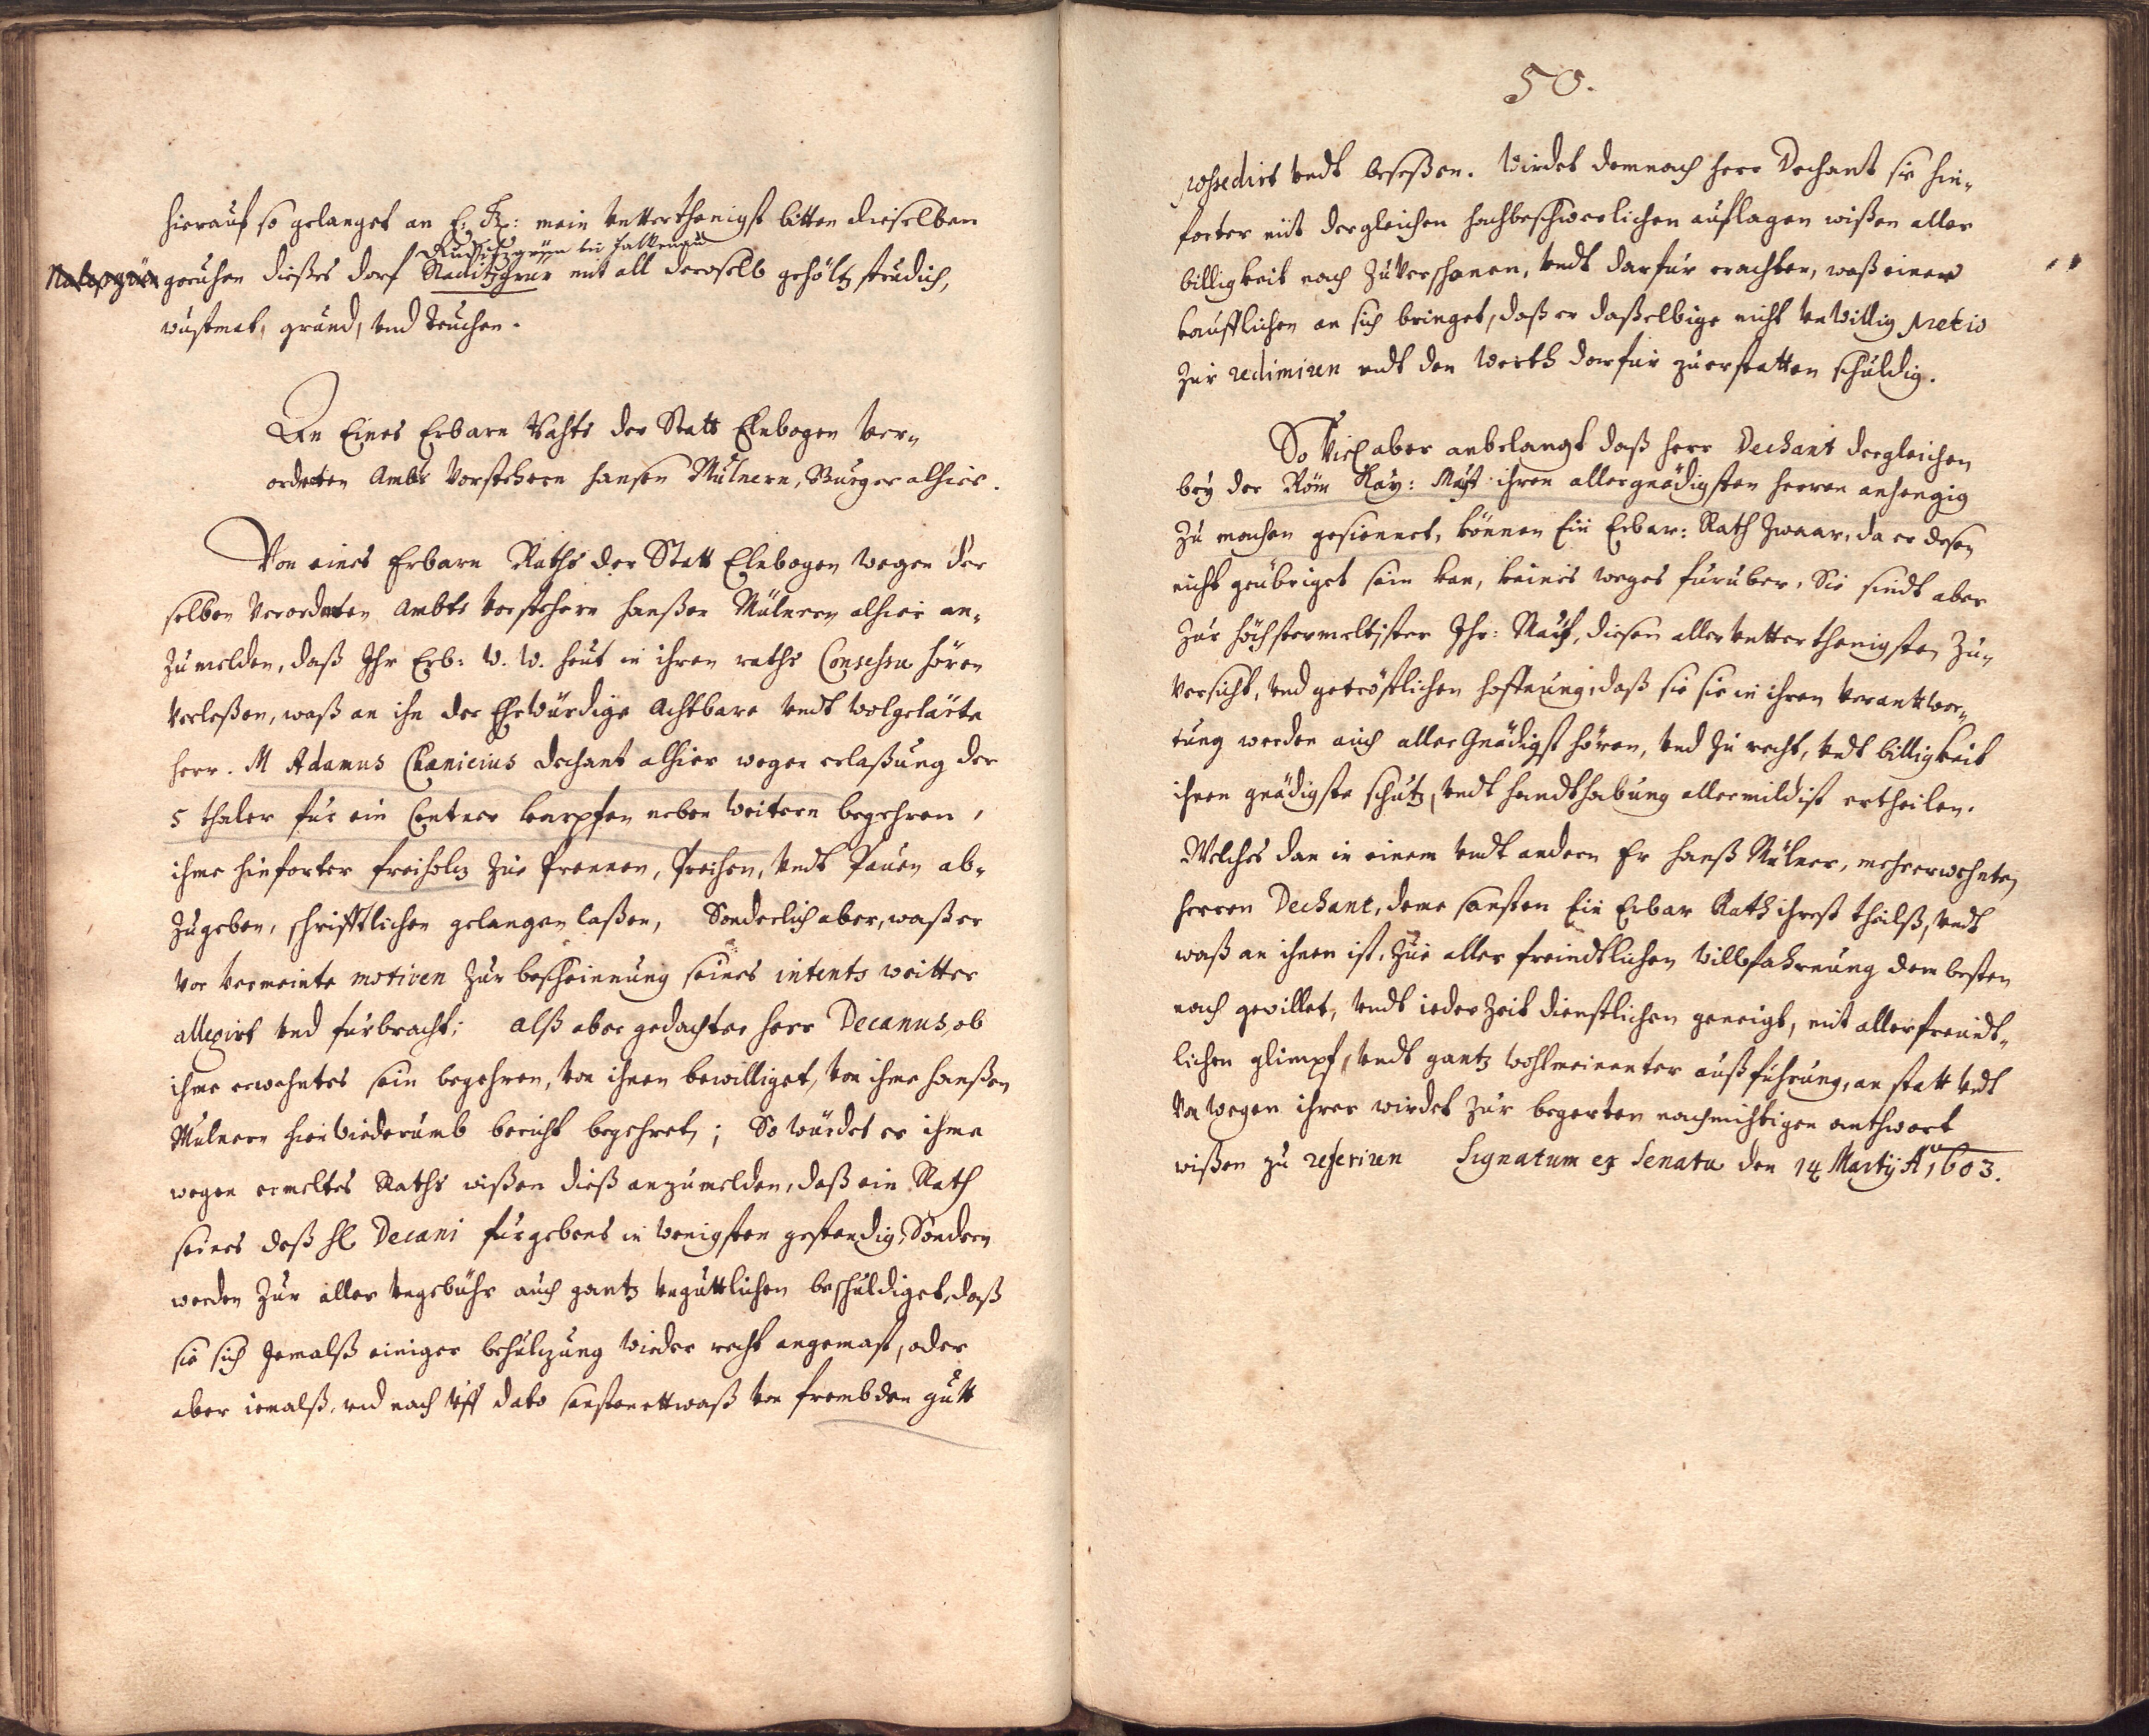 hierauf so gelanget an E: Gn: mein untterthenigst bitten dieselben
Ruditzgrün bei Falkenau
geruhen dießes dorf Raditzgrün mit all deroselb gehöltz, teudich,
wustmat, grund, und Teuchen.
An Eines Erbarn Rahts der Statt Elnbogen Ver-
ordneten Ambts Vorstehern Hansen Mülnern, Burger alhier.
Von eines Erbarn Raths der Statt Elnbogen wegen der
selben Verordneten Ambts Vorstehern Hanßen Mülnern alhier an-
zumelden, daß Ihr Erb: W. W. heut in ihren raths Consessu hören
Verleßen, waß an ihn der Ehrwürdige Achtbare undt wolgelärte
Herr. M Adamus Chanicius dechant alhier wegen erlaßung der
5 thaler für ein Centner karpfen neben weitern begehren,
ihme hinforter freiholz zue Prennen, Preihen, undt Pauen ab-
zugeben, schrifftlichen gelangen laßen, Sonderlich aber, waß er
vor vermeinte motiven zur bescheinnung seines intents weitter
allegirt und fürbracht; alß aber gedachter Herr Decanus, ob
ihme erwehntes sein begehren, von ihnen bewilliget, von ihme Hanßen
Mulnern hinwiederumb bericht begehret; So würdet er ihme
wegen ermeltes Raths wißen dieß anzumelden, daß ein Rath
seines deß H Decani fürgebens in wenigsten gestendig, Sondern
werden zur aller ungebühr auch gantz ungüttlichen beschuldiget, daß
sie sich Jemalß einiger behülzung wieder recht angemast, oder
aber iemalß, und nach uff dato sonsten ettwaß von frembden gutt
50.
possedirt undt beseßen. Wirdet demnach Herr Dechant sie hin-
forter mit dergleichen hochbeschwerlichen auflagen wißen aller
billigkeit nach zuverschonen, undt darfür erachten, waß einer
kaufflichen an sich bringet, daß er daßelbige nicht unwillig pretio
zur redimiren undt den Werth dorfür zuerstatten schuldig.
So Viel aber anbelangt daß Herr Dechant dergleichen
bey der Röm Kay: Mayt ihren allergnädigsten Herren anhengig
zu machen gesiennet, können Ein Erbar: Rath zwaar, da er desen
nicht geübriget sein kan, keines weges furüber, Sie sindt aber
zur höchstermeltister Ihr: Mayt, diesen aller untterthenigsten zu-
versicht, und getröstlichen hoffnung, daß sie sie in ihren verantwor-
tung werden auch aller Gnädigst hören, und zu recht, undt billigkeit
ihren gnädigste schutz, undt handthabung allermildist ertheilen.
Welches dan in einem undt andern Er Hanß Mülner, mehrerwehnten
Herren Dechant, deme sonsten Ein Erbar Rath ihreß theilß, undt
waß an ihnen ist, zue aller freindtlichen willfahrnung dem besten
nach gewillet, undt ieder zeit dienstlichen geneigt, mit allerfreindt-
lichen glimpf, undt gantz wohlmeinenter außführung, an statt undt
von wegen ihrer wirdet zur begerten nachrichtigen anthwort
wißen zu referiren Signatum ex Senatu den 14 Martij Ao 1603.